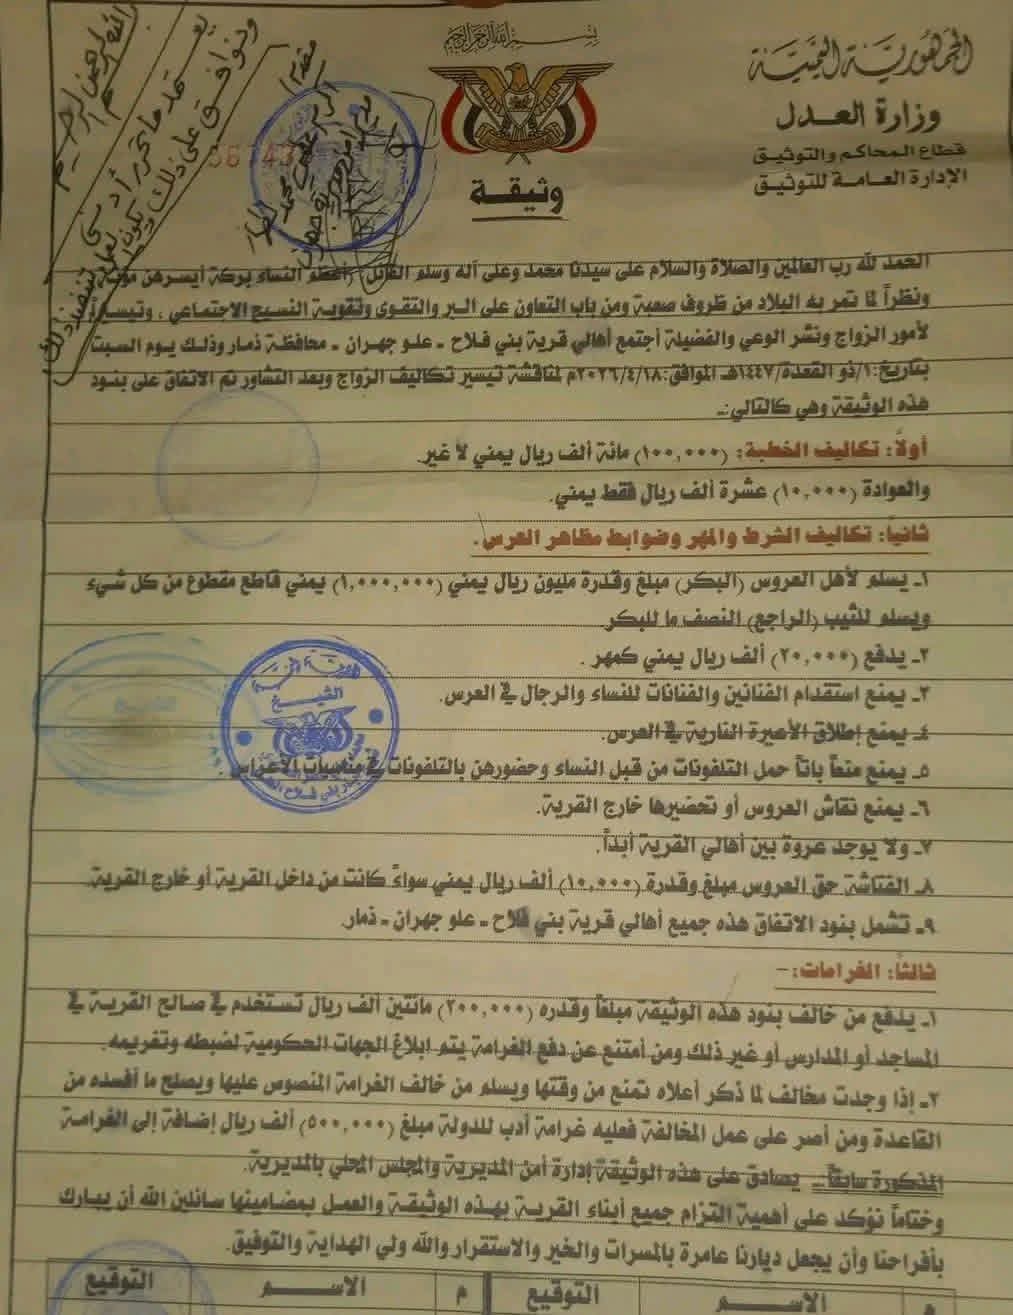 بسم الله الرحمن الرحيم
الجمهورية اليمنية
وزارة العدل
قطاع المحاكم والتوثيق
الإدارة العامة للتوثيق
وثيقة
بسم الله الرحمن الرحيم
يعتمد ما تحرر أدنى
ونوافق على ذلك
الحمد لله رب العالمين والصلاة والسلام على سيدنا محمد وعلى آله وسلم القائل (أعظم النساء بركة أيسرهن مؤنة
ونظراً لما تمر به البلاد من ظروف صعبة ومن باب التعاون على البر والتقوى وتقوية النسيج الاجتماعي ، وتيسيراً
لأمور الزواج ونشر الوعي والفضيلة أجتمع أهالي قرية بني فلاح ـ علو جهران ـ محافظة ذمار وذلك يوم السبت
بتاريخ:١/ذو القعدة/١٤٤٧هـ الموافق:٢٠٢٦/٤/١٨م لمناقشة تيسير تكاليف الزواج وبعد التشاور تم الاتفاق على بنود
هذه الوثيقة وهي كالتالي:ـ
أولاً: تكاليف الخطبة: (١٠٠,٠٠٠) مائة ألف ريال يمني لا غير.
والعوادة (١٠,٠٠٠) عشرة ألف ريال فقط يمني.
ثانياً: تكاليف الشرط والمهر وضوابط مظاهر العرس .
١ـ يسلم لأهل العروس (البكر) مبلغ وقدرة مليون ريال يمني (١,٠٠٠,٠٠٠) يمني قاطع مقطوع من كل شيء
ويسلم للثيب (الراجع) النصف ما للبكر.
٢ـ يدفع (٢٠,٠٠٠) ألف ريال يمني كمهر .
٣ـ يمنع استقدام الفنانين والفنانات للنساء والرجال في العرس.
٤ـ يمنع إطلاق الأعيرة النارية في العرس.
٥ـ يمنع منعاً باتاً حمل التلفونات من قبل النساء وحضورهن بالتلفونات في مناسبات الأعراس .
٦ـ يمنع نقاش العروس أو تحضيرها خارج القرية.
٧ـ ولا يوجد عروة بين أهالي القرية أبداً.
٨ـ الفتاشة حق العروس مبلغ وقدرة (١٠,٠٠٠) ألف ريال يمني سواءً كانت من داخل القرية أو خارج القرية.
٩ـ تشمل بنود الاتفاق هذه جميع أهالي قرية بني فلاح ـ علو جهران ـ ذمار.
ثالثاً: الغرامات:ـ
١ـ يدفع من خالف بنود هذه الوثيقة مبلغاً وقدره (٢٠٠,٠٠٠) مائتين ألف ريال تستخدم في صالح القرية في
المساجد أو المدارس أو غير ذلك ومن أمتنع عن دفع الغرامة يتم ابلاغ الجهات الحكومية لضبطه وتغريمه.
٢ـ إذا وجدت مخالف لما ذكر أعلاه تمنع من وقتها ويسلم من خالف الغرامة المنصوص عليها ويصلح ما أفسده من
القاعدة ومن أصر على عمل المخالفة فعليه غرامة أدب للدولة مبلغ (٥٠٠,٠٠٠) ألف ريال إضافة إلى الغرامة
المذكورة سابقاً ـ يصادق على هذه الوثيقة إدارة أمن المديرية والمجلس المحلي بالمديرية.
وختاماً نؤكد على أهمية التزام جميع أبناء القرية بهذه الوثيقة والعمل بمضامينها سائلين الله أن يبارك
بأفراحنا وأن يجعل ديارنا عامرة بالمسرات والخير والاستقرار والله ولي الهداية والتوفيق.
م الاســم التوقيع م الاســم التوقيع